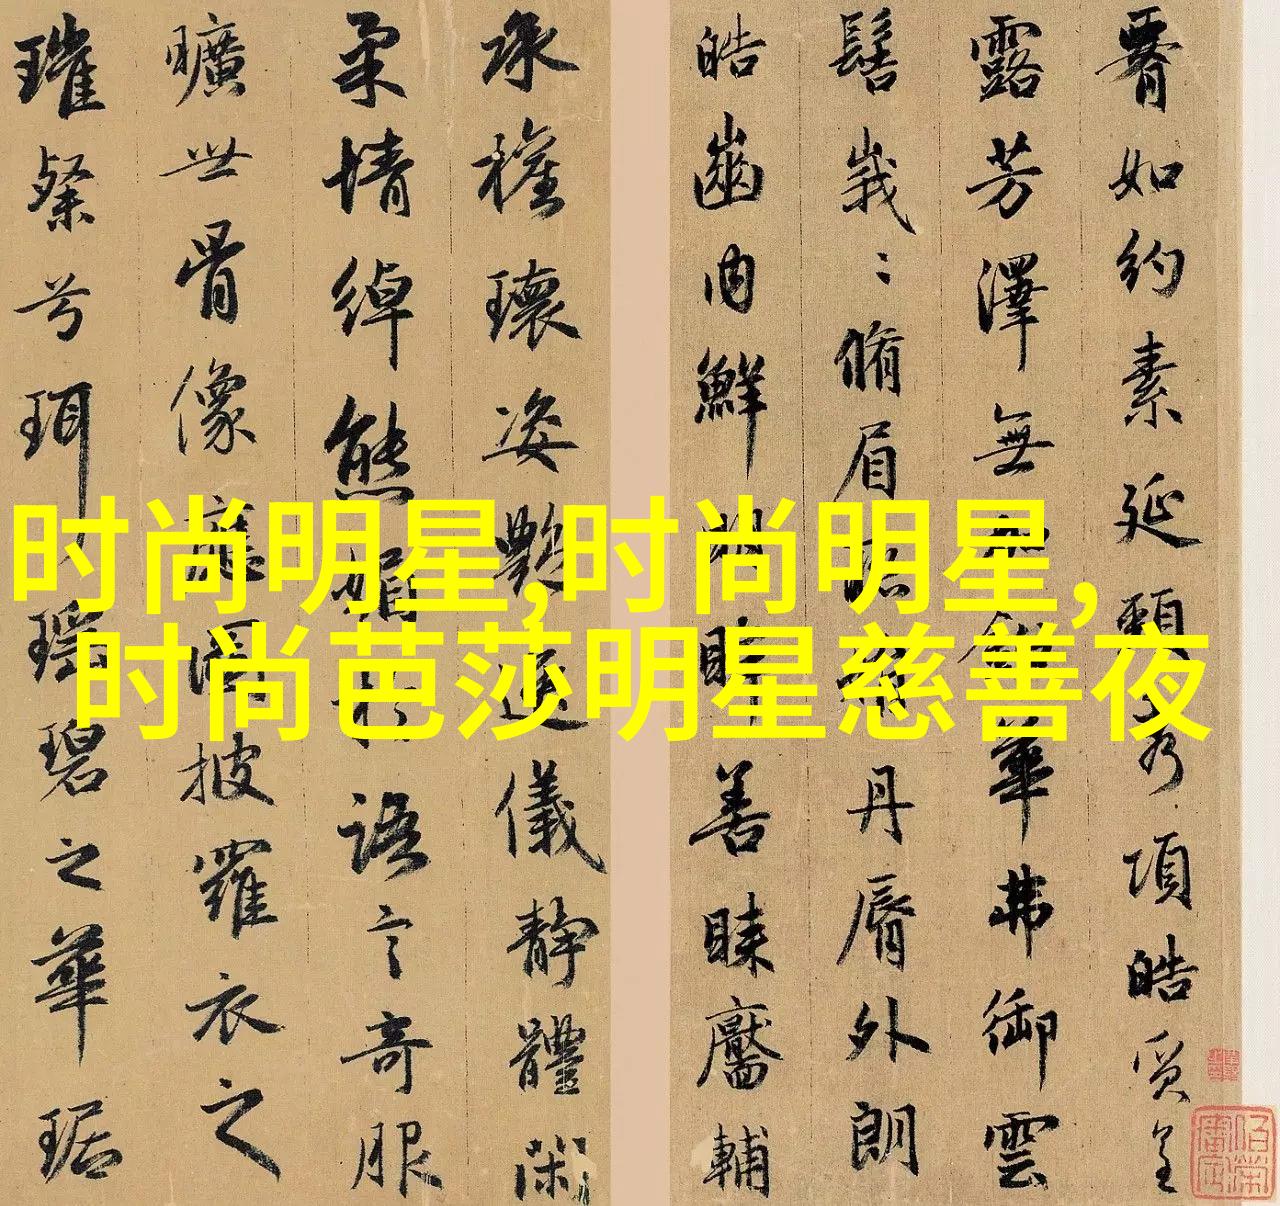 肩如約素延頸秀項皓質呈
露芳澤無鉛華弗御雲
髻峩〻脩眉丹脣外朗
皓齒内鮮明眸善睞靨輔
承權瓌姿艷逸儀靜體閑
柔情綽態媚於語言奇服
曠世骨像應圖披羅衣之
璀粲兮珥瑤碧之華琚
时尚明星,时尚明星,
时尚芭莎明星慈善夜